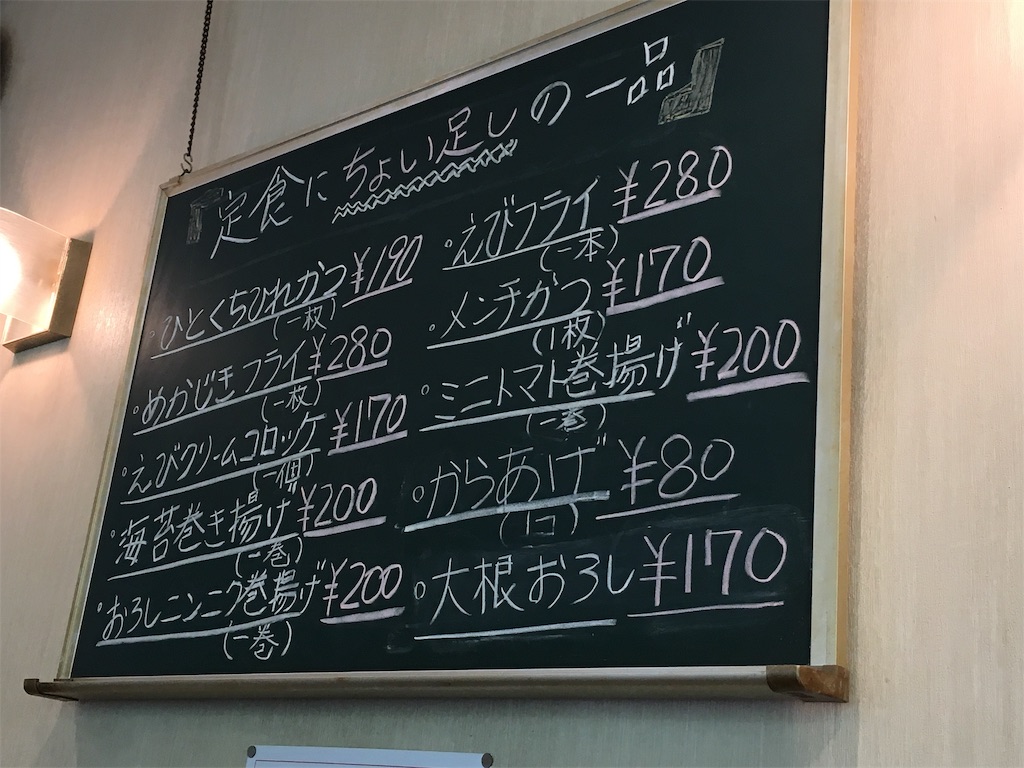 『定食にちょい足しの一品』
・ひとくちひれかつ ¥190
(一枚)
・めかじきフライ ¥280
(一枚)
・えびクリームコロッケ ¥170
(一個)
・海苔巻き揚げ ¥200
(一巻)
・おろしニンニク巻揚げ ¥200
(一巻)
・えびフライ ¥280
(一本)
・メンチかつ ¥170
(1枚)
・ミニトマト巻揚げ ¥200
(一巻)
・からあげ ¥80
(1コ)
・大根おろし ¥170